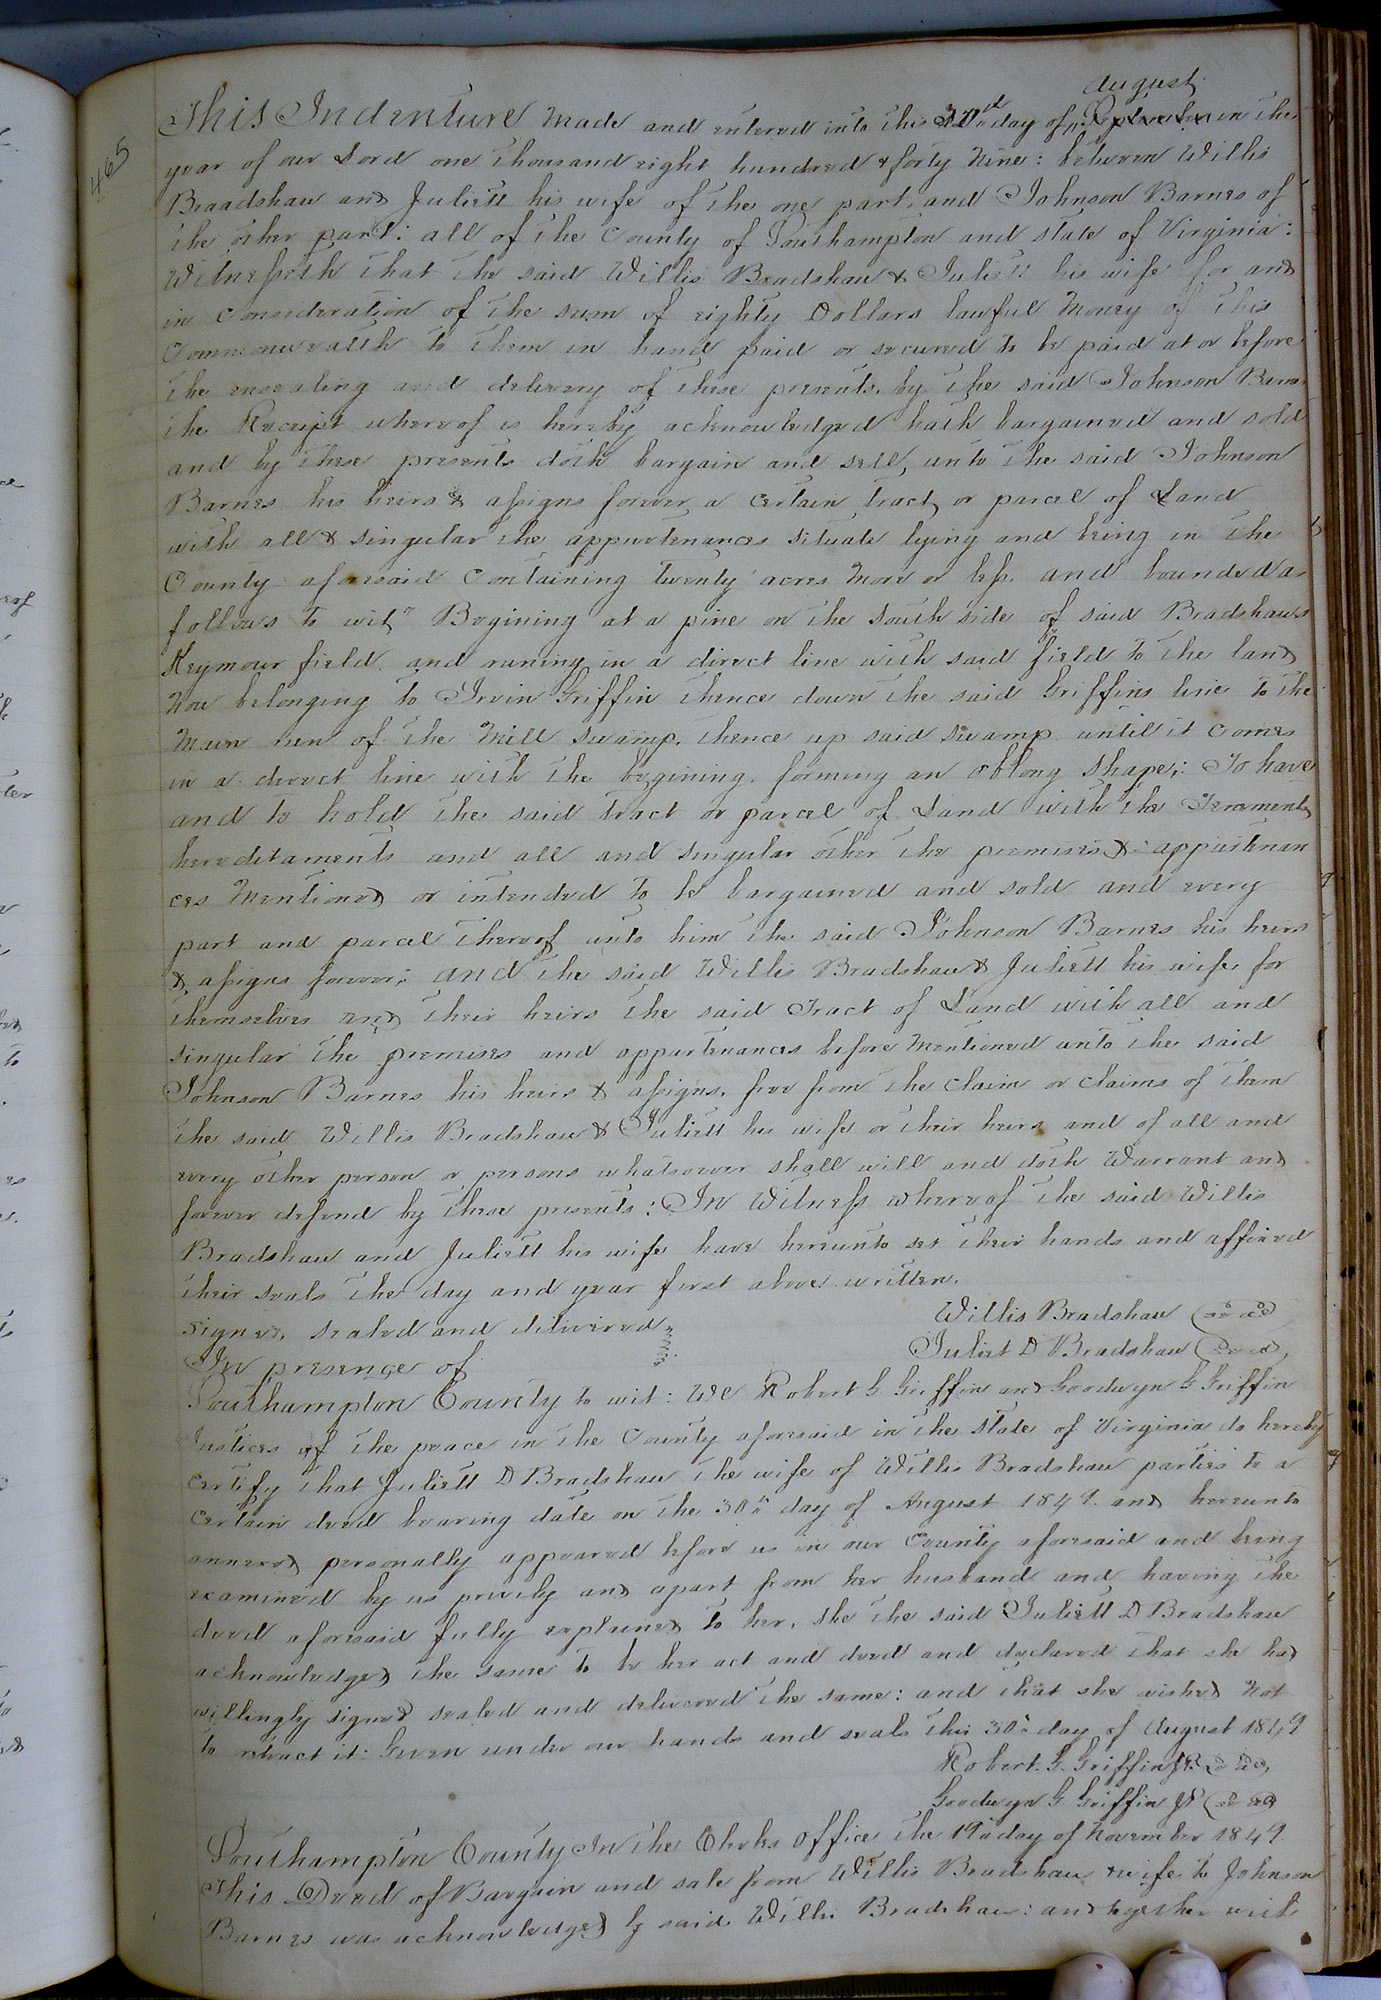 465
August
This Indenture Made and entered into this 30th day of September in the
year of our Lord one thousand eight hundred & forty Nine: between Willis
Braadshaw and Juliett his wife of the one part, and Johnson Barnes of
the other part: all of the County of Southampton and state of Virginia:
Witnesseth that the said Willis Bradshaw & Juliett his wife for and
in Consideration of the sum of eighty Dollars lawful Money of this
Commonwealth to them in hand paid or secured to be paid at or before
the ensealing and delivery of these presents, by the said Johnson Barnes
the Receipt whereof is hereby acknowledged hath bargained and sold
and by these presents doth bargain and sell, unto the said Johnson
Barnes his heirs & assigns forever a Certain tract or parcel of Land
with all & singular the appurtenances situate lying and being in the
County aforesaid Containing twenty acres More or less, and bounded as
follows to wit, Begining at a pine on the south side of said Bradshaws
Keymour field and runing in a direct line with said field to the land
Now belonging to Irvin Griffin thence down the said Griffins line to the
Main run of the Mill swamp, thence up said swamp until it Comes
in a direct line with the begining, forming an oblong shape; To have
and to hold the said tract or parcel of Land with the Tenements
hereditaments and all and singular other the premises & appurtenan
ces Mentioned or intended to be bargained and sold and every
part and parcel thereof unto him the said Johnson Barnes his heirs
& assigns forever; and the said Willis Bradshaw & Juliett his wife for
themselves and their heirs the said Tract of Land with all and
singular the premises and appurtenances before Mentioned unto the said
Johnson Barnes his heirs & assigns, free from the Claim or Claims of them
the said Willis Bradshaw & Juliett his wife or their heirs and of all and
every other person or persons whatsoever shall will and doth Warrant and
forever defend by these presents: In Witness whereof the said Willis
Bradshaw and Juliett his wife have hereunto set their hands and affixed
their seals the day and year first above written.
Signed, sealed and delivered
Willis Bradshaw (seal)
In presence of
Juliet D Bradshaw (seal)
Southampton County to wit: We Robert G. Griffin and Goodwyn G Griffin
Justices of the peace in the County aforesaid in the State of Virginia do hereby
Certify that Juliett D Bradshaw the wife of Willis Bradshaw parties to a
Certain deed bearing date on the 30th day of August 1849. and hereunto
annexed personally appeared before us in our County aforesaid and being
examined by us privily and apart from her husband and having the
deed aforesaid fully explained to her, she the said Juliett D Bradshaw
acknowledged the same to be her act and deed and declared that she had
willingly signed sealed and delivered the same: and that she wished Not
to retract it: Given under our hands and seals this 30th day of August 1849
Robert. G. Griffin JP. (seal)
Goodwyn G Griffin JP (seal)
Southampton County In the Clerks office the 19th day of November 1849.
This Deed of Bargain and sale from Willis Bradshaw & wife to Johnson
Barnes was acknowledged by said Willis Bradshaw: and together with